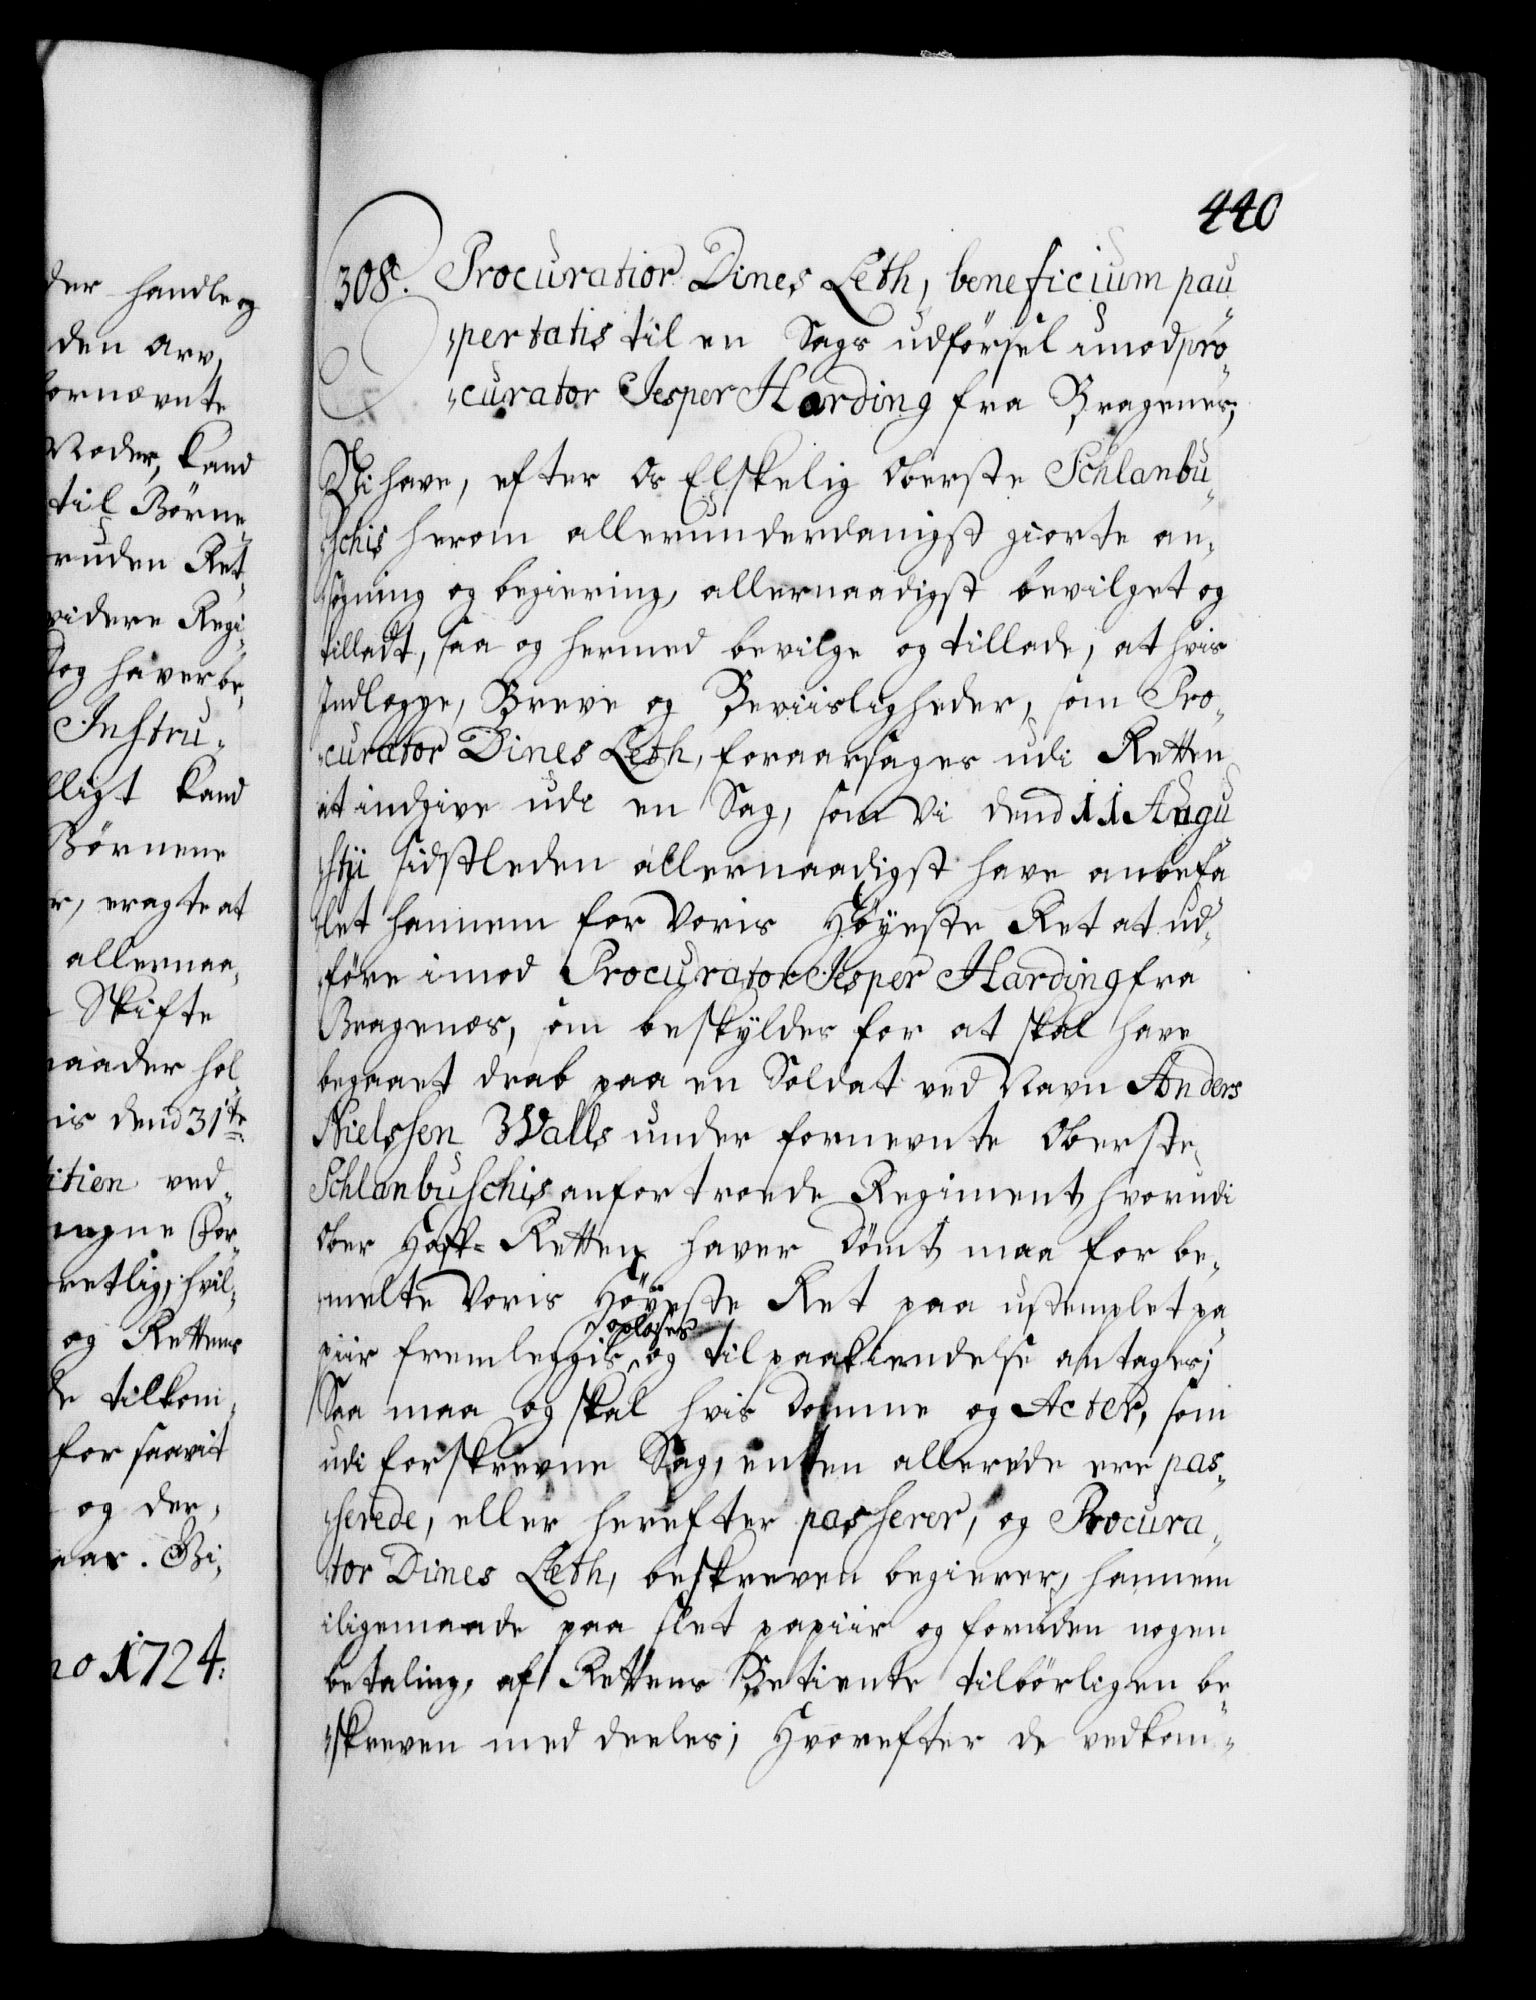 der handle og
den Arv,
fornævnte
Moder, kand
til Børne¸
ruden Ret¸
videre Regi¸
dog haver be¸
Instru¸
lligt kand
Børnene
r, eragte at
allernaa¸
Skifte
maader hol¸
is dend 31te
titien ved¸
egne For¸
retlig, hvil¸
og Rettens
de tilkom¸
for saavit
og der¸
aar. Gi¸
no 1724:
440
308. Procuratior Dines Leth, beneficium pau¸
¸pertatis til en Sags udførsel imod pro¸
¸curator Jesper Harding fra Bragenes;
Vi have, efter Os Elskelig Oberste Schlanbu¸
¸schis herom allerunderdanigst giorte an¸
¸søgning og begiering, allernaadigst bevilget og
tilladt, saa og hermed bevilge og tillade, at hvis
Indlegge, Breve og Beviisligheder, som Pro¸
¸curator Dines Leth, foraarsages udi Retten
at indgive udi en Sag, som Vi dend 11 Augu¸
¸stji sidstleden allernaadigst have anbefa¸
¸let hannem for Voris Høyeste Ret at ud¸
¸føre imod Procurator Jesper Harding fra
Bragenes, som beskyldes for at skal have
begaaet drab paa en Soldat ved Navn Anders
Nielssen Walls under fornevnte Oberste
Schlanbuschis anfortroede Regiment, hvorudi
Ober Hoff-Retten haver dømt, maa for be¸
¸melte Voris Høyeste Ret paa ustemplet pa¸
oplæses
piir fremleggis, og til paakiendelse antages;
Saa maa og skal hvis Domme og Acter, som
udi forskrevne Sag, enten allerede ere pas¸
¸serede, eller herefter passerer, og Procura¸
¸tor Dines Leth, beskreven begierer, hannem
iligemaade paa slet papiir og foruden nogen
betaling, af Rettens Betiente tilbørligen be¸
¸skreven meddeeles; Hvorefter de vedkom¸